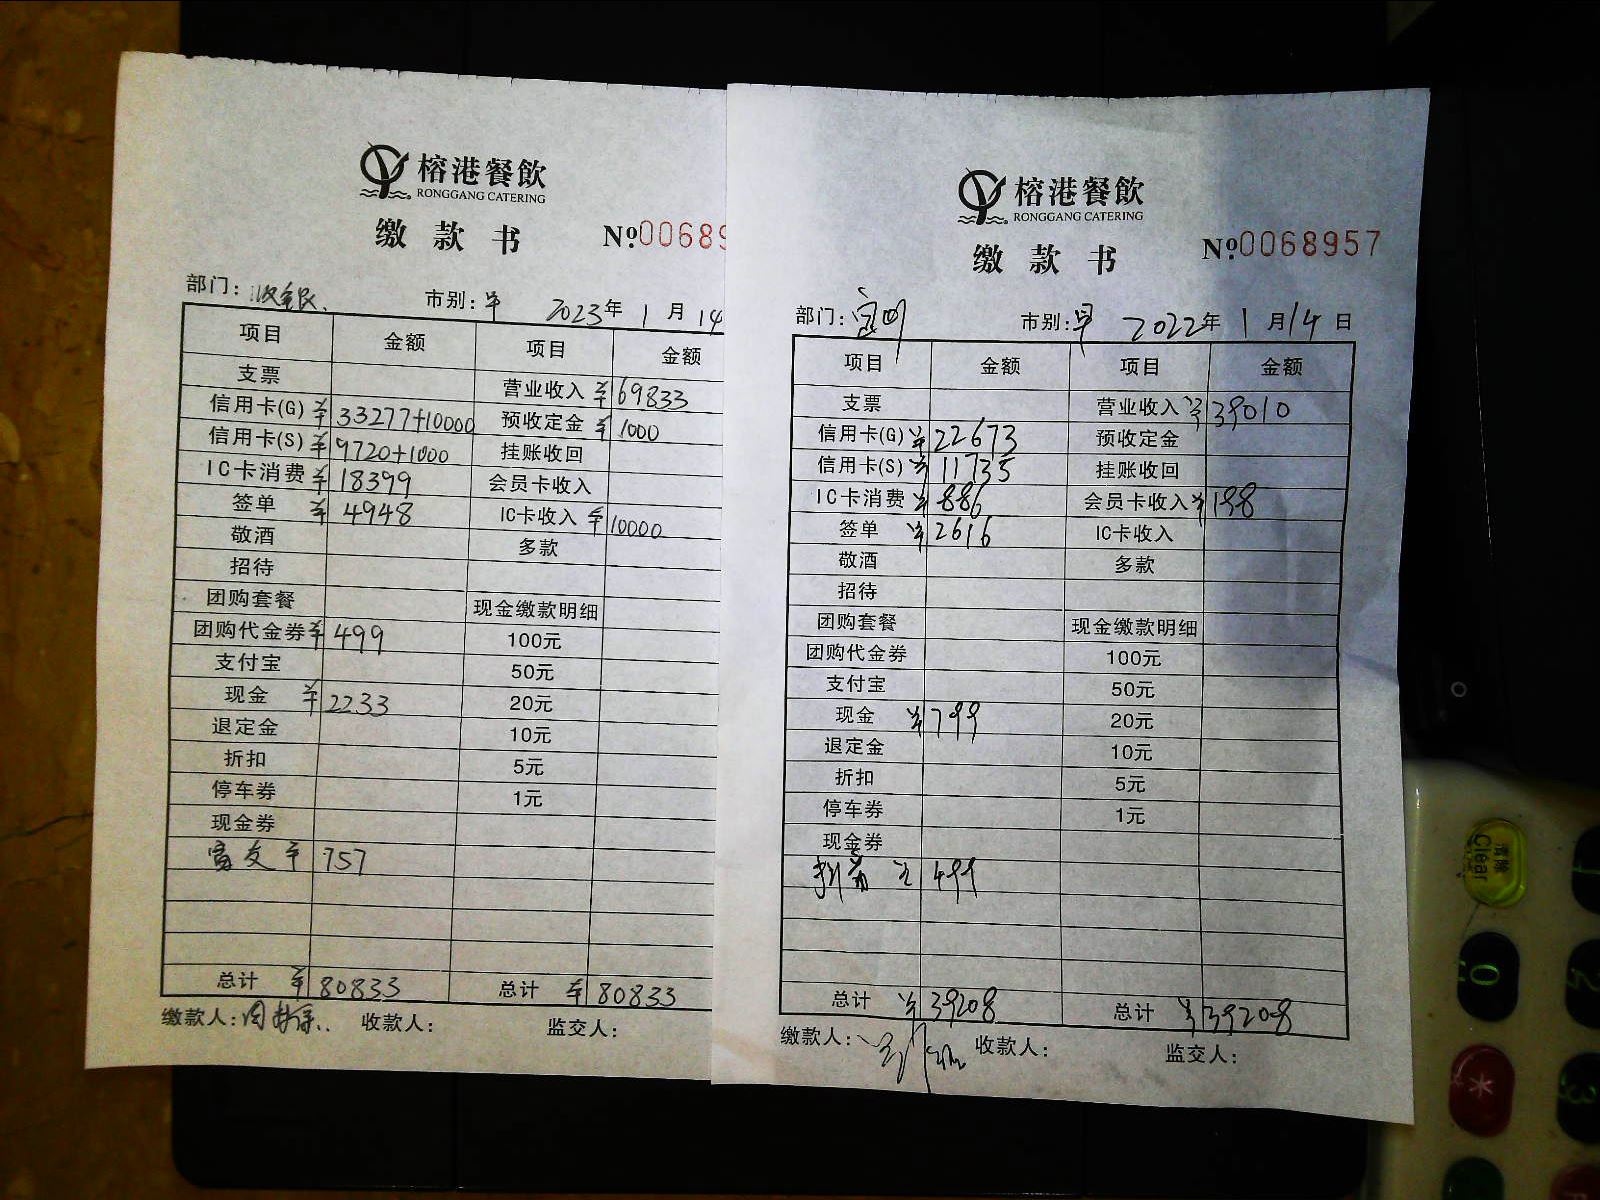 榕港餐飲
RONGGANG CATERING
缴款书 №00689
部门: 收银 市别: 早 2023年1月14
项目 金额 项目 金额
支票 营业收入 ¥69833
信用卡(G) ¥33277+10000 预收定金 ¥1000
信用卡(S) ¥9720+1000 挂账收回
IC卡消费 ¥18399 会员卡收入
签单 ¥4948 IC卡收入 ¥10000
敬酒 多款
招待
团购套餐 现金缴款明细
团购代金券 ¥499 100元
支付宝 50元
现金 ¥2233 20元
退定金 10元
折扣 5元
停车券 1元
现金券
富友 ¥757
总计 ¥80833 总计 ¥80833
缴款人: 收款人: 监交人:
榕港餐飲
RONGGANG CATERING
缴款书 №0068957
部门: 市别: 早 2022年1月14日
项目 金额 项目 金额
支票 营业收入 ¥39010
信用卡(G) ¥22673 预收定金
信用卡(S) ¥11735 挂账收回
IC卡消费 ¥886 会员卡收入 ¥198
签单 ¥2616 IC卡收入
敬酒 多款
招待
团购套餐 现金缴款明细
团购代金券 100元
支付宝 50元
现金 ¥799 20元
退定金 10元
折扣 5元
停车券 1元
现金券
499
总计 ¥39208 总计 ¥39208
缴款人: 收款人: 监交人:
清除
Clear
0
*